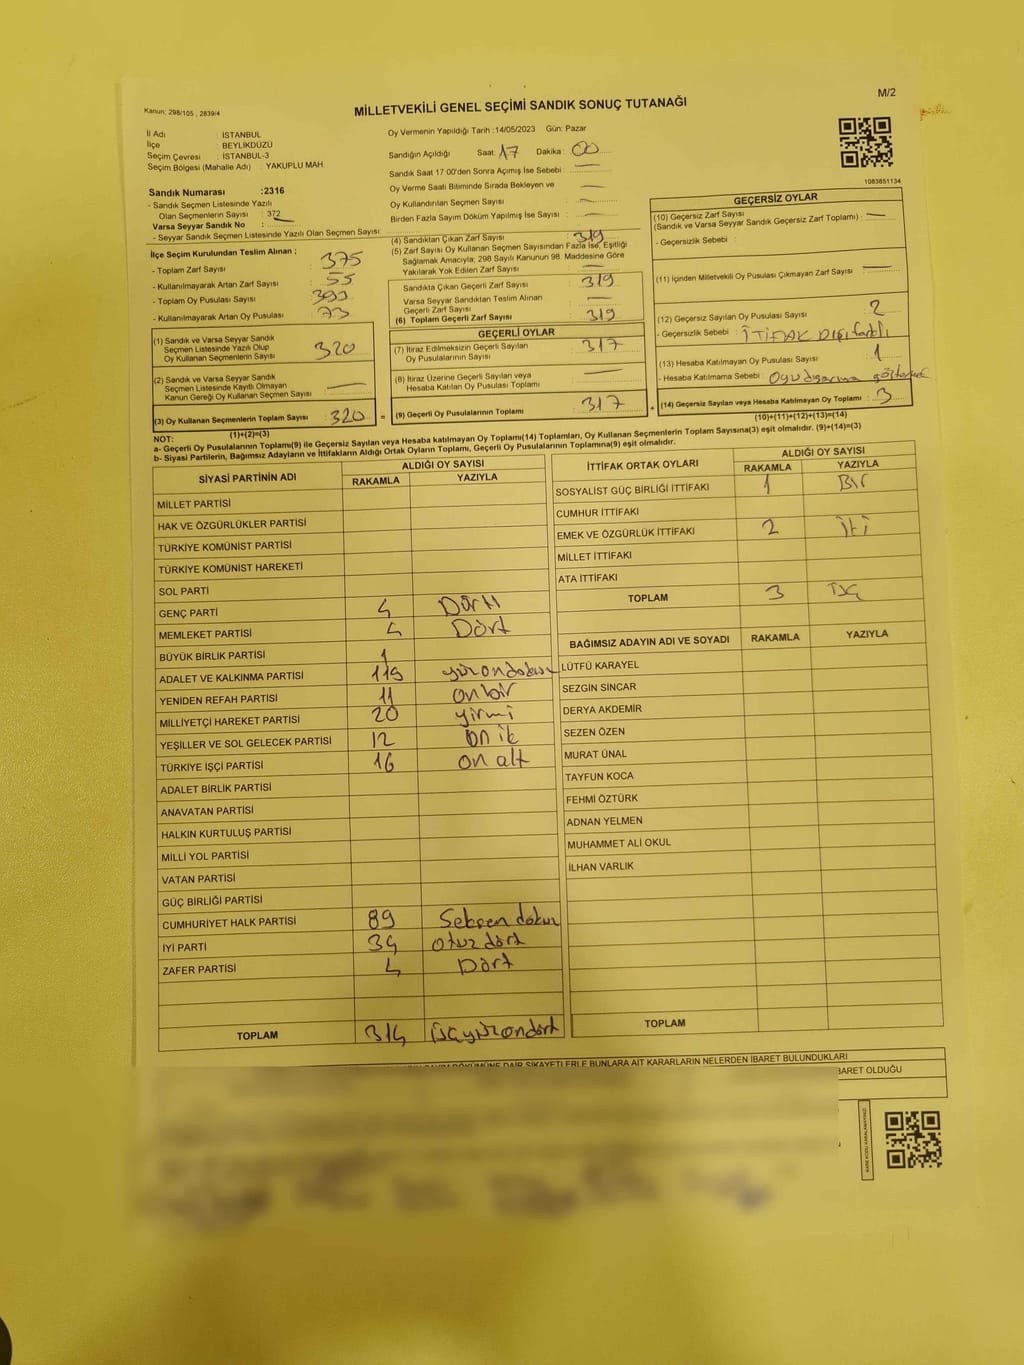 M/2
Kanun: 298/105 , 2839/4
MİLLETVEKİLİ GENEL SEÇİMİ SANDIK SONUÇ TUTANAĞI
İl Adı : İSTANBUL
İlçe : BEYLİKDÜZÜ
Seçim Çevresi : İSTANBUL-3
Seçim Bölgesi (Mahalle Adı) : YAKUPLU MAH.
Sandık Numarası :2316
- Sandık Seçmen Listesinde Yazılı
Olan Seçmenlerin Sayısı : 372
Varsa Seyyar Sandık No :
- Seyyar Sandık Seçmen Listesinde Yazılı Olan Seçmen Sayısı:
Oy Vermenin Yapıldığı Tarih :14/05/2023 Gün: Pazar
Sandığın Açıldığı Saat: 17 Dakika : 00
Sandık Saat 17:00'den Sonra Açımış İse Sebebi : —
Oy Verme Saati Bitiminde Sırada Bekleyen ve
Oy Kullandırılan Seçmen Sayısı : —
Birden Fazla Sayım Döküm Yapılmış İse Sayısı : —
1083851134
İlçe Seçim Kurulundan Teslim Alınan ;
- Toplam Zarf Sayısı : 375
- Kullanılmayarak Artan Zarf Sayısı : 55
- Toplam Oy Pusulası Sayısı :
- Kullanılmayarak Artan Oy Pusulası : 73
(1) Sandık ve Varsa Seyyar Sandık
Seçmen Listesinde Yazılı Olup
Oy Kullanan Seçmenlerin Sayısı : 320
(2) Sandık ve Varsa Seyyar Sandık
Seçmen Listesinde Kayıtlı Olmayan
Kanun Gereği Oy Kullanan Seçmen Sayısı : —
(3) Oy Kullanan Seçmenlerin Toplam Sayısı : 320 =
(1)+(2)=(3)
(4) Sandıktan Çıkan Zarf Sayısı : 319
(5) Zarf Sayısı Oy Kullanan Seçmen Sayısından Fazla İse, Eşitliği
Sağlamak Amacıyla; 298 Sayılı Kanunun 98. Maddesine Göre
Yakılarak Yok Edilen Zarf Sayısı : —
Sandıkta Çıkan Geçerli Zarf Sayısı : 319
Varsa Seyyar Sandıktan Teslim Alınan
Geçerli Zarf Sayısı : —
(6) Toplam Geçerli Zarf Sayısı : 319
GEÇERLİ OYLAR
(7) İtiraz Edilmeksizin Geçerli Sayılan
Oy Pusulalarının Sayısı : 317
(8) İtiraz Üzerine Geçerli Sayılan veya
Hesaba Katılan Oy Pusulası Toplamı : —
(9) Geçerli Oy Pusulalarının Toplamı : 317 +
GEÇERSİZ OYLAR
(10) Geçersiz Zarf Sayısı
(Sandık ve Varsa Seyyar Sandık Geçersiz Zarf Toplamı) : —
- Geçersizlik Sebebi :
(11) İçinden Milletvekili Oy Pusulası Çıkmayan Zarf Sayısı : —
(12) Geçersiz Sayılan Oy Pusulası Sayısı : 2
- Geçersizlik Sebebi : İTİFAK DIŞI farklı
(13) Hesaba Katılmayan Oy Pusulası Sayısı : 1
- Hesaba Katılmama Sebebi :
(14) Geçersiz Sayılan veya Hesaba Katılmayan Oy Toplamı : 3
(10)+(11)+(12)+(13)=(14)
NOT:
a- Geçerli Oy Pusulalarının Toplamı(9) ile Geçersiz Sayılan veya Hesaba katılmayan Oy Toplamı(14) Toplamları, Oy Kullanan Seçmenlerin Toplam Sayısına(3) eşit olmalıdır. (9)+(14)=(3)
b- Siyasi Partilerin, Bağımsız Adayların ve İttifakların Aldığı Ortak Oyların Toplamı, Geçerli Oy Pusulalarının Toplamına(9) eşit olmalıdır.
SİYASİ PARTİNİN ADI
ALDIĞI OY SAYISI
RAKAMLA YAZIYLA
MİLLET PARTİSİ
HAK VE ÖZGÜRLÜKLER PARTİSİ
TÜRKİYE KOMÜNİST PARTİSİ
TÜRKİYE KOMÜNİST HAREKETİ
SOL PARTİ
GENÇ PARTİ 4
MEMLEKET PARTİSİ 4 Dört
BÜYÜK BİRLİK PARTİSİ 1
ADALET VE KALKINMA PARTİSİ 119
YENİDEN REFAH PARTİSİ 11 onbir
MİLLİYETÇİ HAREKET PARTİSİ 20 yirmi
YEŞİLLER VE SOL GELECEK PARTİSİ 12 on ik
TÜRKİYE İŞÇİ PARTİSİ 16 on alt
ADALET BİRLİK PARTİSİ
ANAVATAN PARTİSİ
HALKIN KURTULUŞ PARTİSİ
MİLLİ YOL PARTİSİ
VATAN PARTİSİ
GÜÇ BİRLİĞİ PARTİSİ
CUMHURİYET HALK PARTİSİ 89 Seksen dokuz
İYİ PARTİ 34 otuz dört
ZAFER PARTİSİ 4 Dört
TOPLAM 314 üçyüzondört
İTTİFAK ORTAK OYLARI
ALDIĞI OY SAYISI
RAKAMLA YAZIYLA
SOSYALİST GÜÇ BİRLİĞİ İTTİFAKI 1 Bir
CUMHUR İTTİFAKI
EMEK VE ÖZGÜRLÜK İTTİFAKI 2 iki
MİLLET İTTİFAKI
ATA İTTİFAKI
TOPLAM 3 üç
BAĞIMSIZ ADAYIN ADI VE SOYADI RAKAMLA YAZIYLA
LÜTFÜ KARAYEL
SEZGİN SİNCAR
DERYA AKDEMİR
SEZEN ÖZEN
MURAT ÜNAL
TAYFUN KOCA
FEHMİ ÖZTÜRK
ADNAN YELMEN
MUHAMMET ALİ OKUL
İLHAN VARLIK
TOPLAM
DÖKÜMÜNE DAİR ŞİKAYETLERLE BUNLARA AİT KARARLARIN NELERDEN İBARET BULUNDUKLARI
BARET OLDUĞU